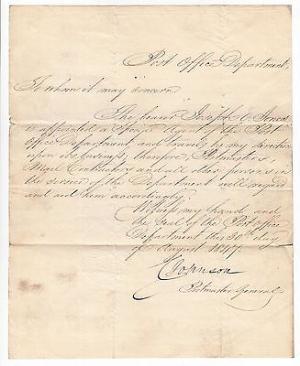 Post Office Department,
To whom it may concern
The bearer Joseph C. Jones
is appointed a Special Agent of the Post
Office Department, and travels by my direction
upon its business, therefore, Postmasters,
Mail Contractors and all other persons in
the service of the Department will regard
and aid him accordingly.
Witness my hand and
the Seal of the Post Office
Department this 30th day
of August 1847.
C Johnson
Postmaster General